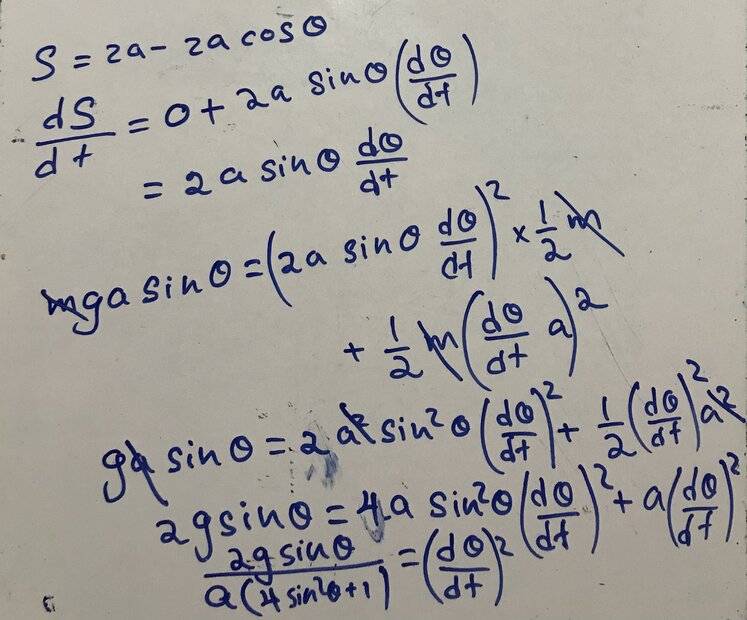 S = 2a - 2a cosθ
dS/dt = 0 + 2a sinθ (dθ/dt)
= 2a sinθ dθ/dt
mga sinθ = (2a sinθ dθ/dt)² × 1/2 m
+ 1/2 m (dθ/dt a)²
ga sinθ = 2a² sin²θ (dθ/dt)² + 1/2 (dθ/dt)² a²
2g sinθ = 4a sin²θ (dθ/dt)² + a (dθ/dt)²
2g sinθ / a(4 sin²θ + 1) = (dθ/dt)²